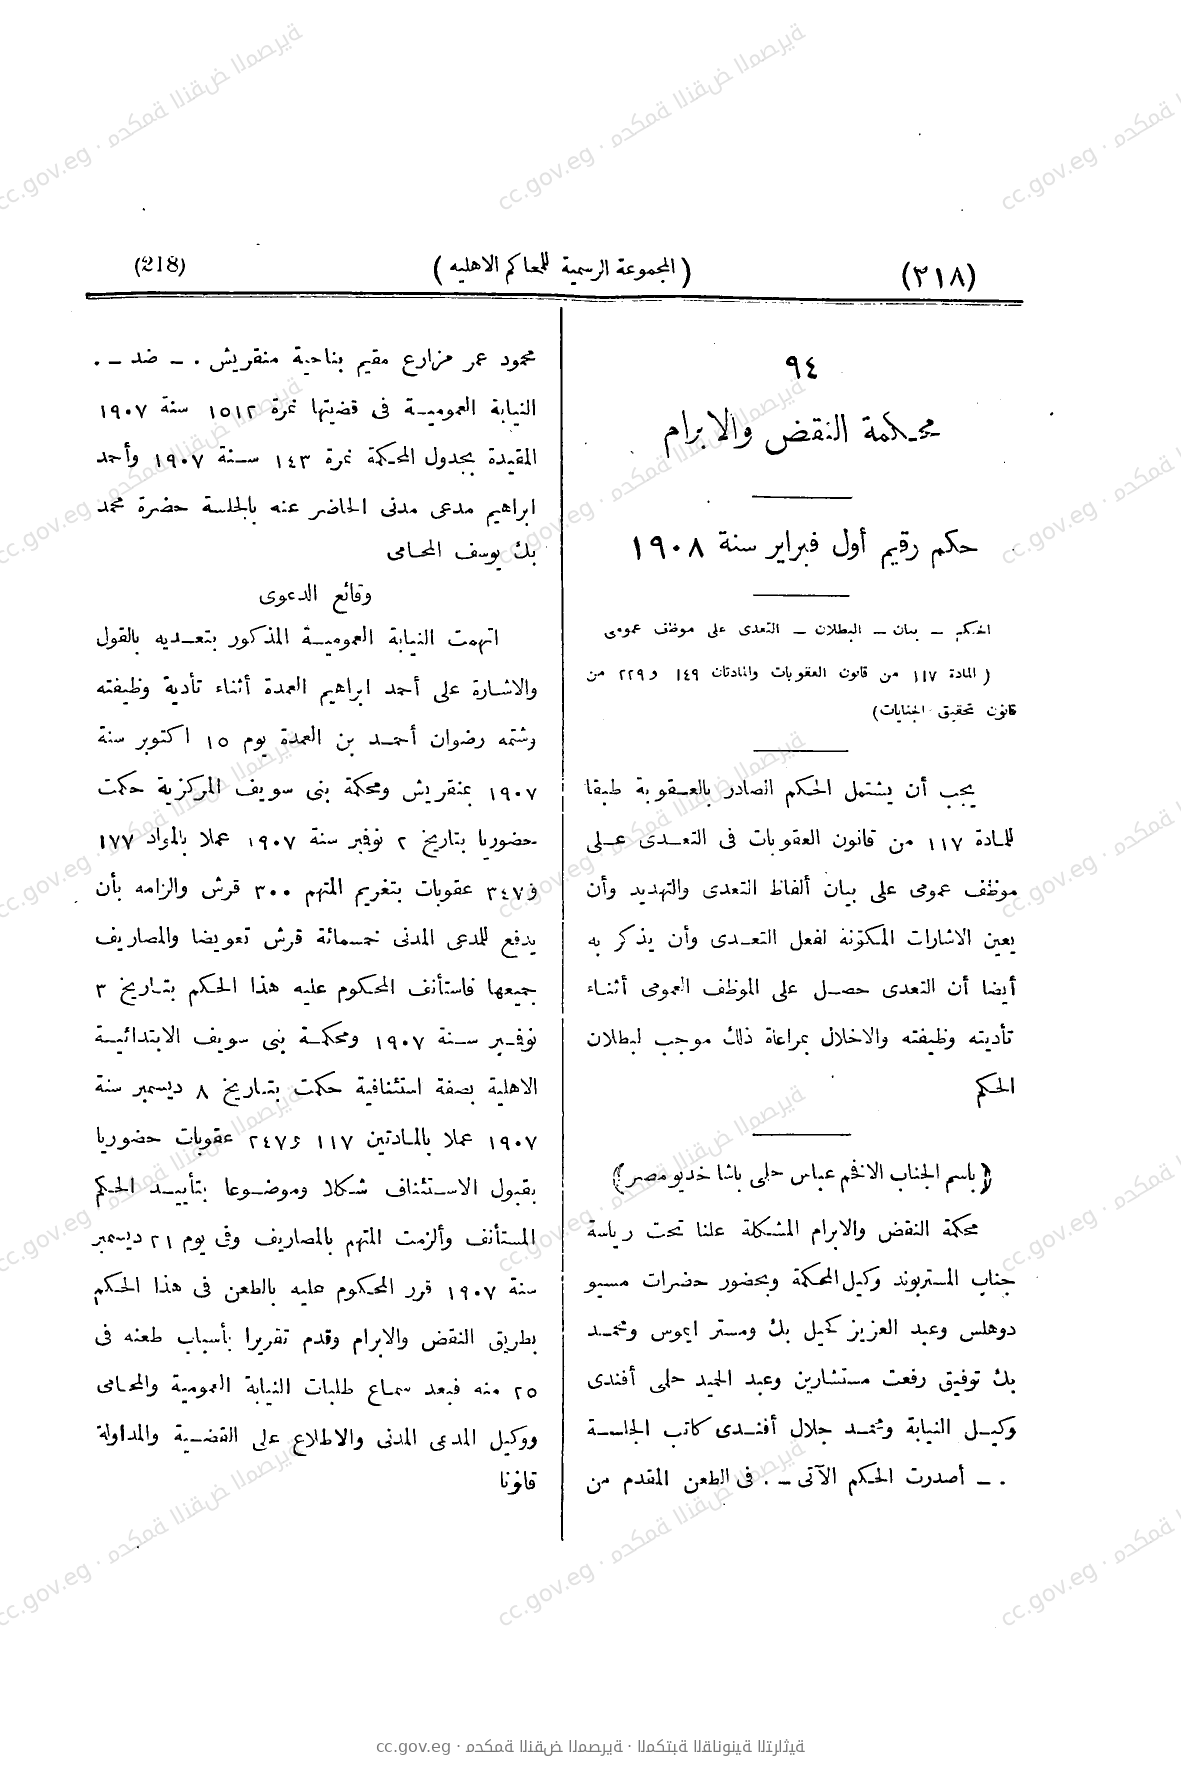 (٢١٨)
(المجموعة الرسمية للمحاكم الاهليه)
(218)
٩٤
محكمة النقض والابرام
حكم رقيم أول فبراير سنة ١٩٠٨
الحكم – بيان – البطلان – التعدى على موظف عمومى
(المادة ١١٧ من قانون العقوبات والمادتان ١٤٩ و٢٢٩ من
قانون تحقيق الجنايات)
يجب أن يشتمل الحكم الصادر بالعقوبة طبقا
للمادة ١١٧ من قانون العقوبات فى التعدى على
موظف عمومى على بيان ألفاظ التعدى والتهديد وأن
يعين الاشارات المكوّنة لفعل التعدى وأن يذكر به
أيضا أن التعدى حصل على الموظف العمومى أثناء
تأديته وظيفته والاخلال بمراعاة ذلك موجب لبطلان
الحكم
(باسم الجناب الافخم عباس حلمى باشا خديو مصر)
محكمة النقض والابرام المشكلة علنا تحت رياسة
جناب المستر بوند وكيل المحكمة وبحضور حضرات مسيو
دوهلس وعبد العزيز كحيل بك ومستر ايموس ومحمد
بك توفيق رفعت مستشارين وعبد الحميد حلمى أفندى
وكيل النيابة ومحمد جلال أفندى كاتب الجلسة
. – أصدرت الحكم الآتى – . فى الطعن المقدم من
محمود عمر مزارع مقيم بناحية منقريش . – ضد – .
النيابة العمومية فى قضيتها نمرة ١٥١٢ سنة ١٩٠٧
المقيدة بجدول المحكمة نمرة ١٤٣ سنة ١٩٠٧ وأحمد
ابراهيم مدعى مدنى الحاضر عنه بالجلسة حضرة محمد
بك يوسف المحامى
وقائع الدعوى
اتهمت النيابة العمومية المذكور بتعديه بالقول
والاشارة على أحمد ابراهيم العمدة أثناء تأدية وظيفته
وشتمه رضوان أحمد بن العمدة يوم ١٥ اكتوبر سنة
١٩٠٧ بمنقريش ومحكمة بنى سويف المركزية حكمت
حضوريا بتاريخ ٢ نوفمبر سنة ١٩٠٧ عملا بالمواد ١٧٧
و٣٤٧ عقوبات بتغريم المتهم ٣٠٠ قرش والزامه بأن
يدفع للمدعى المدنى خمسمائة قرش تعويضا والمصاريف
جميعها فاستأنف المحكوم عليه هذا الحكم بتاريخ ٣
نوفمبر سنة ١٩٠٧ ومحكمة بنى سويف الابتدائية
الاهلية بصفة استئنافية حكمت بتاريخ ٨ ديسمبر سنة
١٩٠٧ عملا بالمادتين ١١٧ و٢٤٧ عقوبات حضوريا
بقبول الاستئناف شكلا وموضوعا بتأييد الحكم
المستأنف وألزمت المتهم بالمصاريف وفى يوم ٢١ ديسمبر
سنة ١٩٠٧ قرر المحكوم عليه بالطعن فى هذا الحكم
بطريق النقض والابرام وقدم تقريرا بأسباب طعنه فى
٢٥ منه فبعد سماع طلبات النيابة العمومية والمحامى
ووكيل المدعى المدنى والاطلاع على القضية والمداولة
قانونا
cc.gov.eg · محكمة النقض المصرية · المكتبة القانونية التراثية